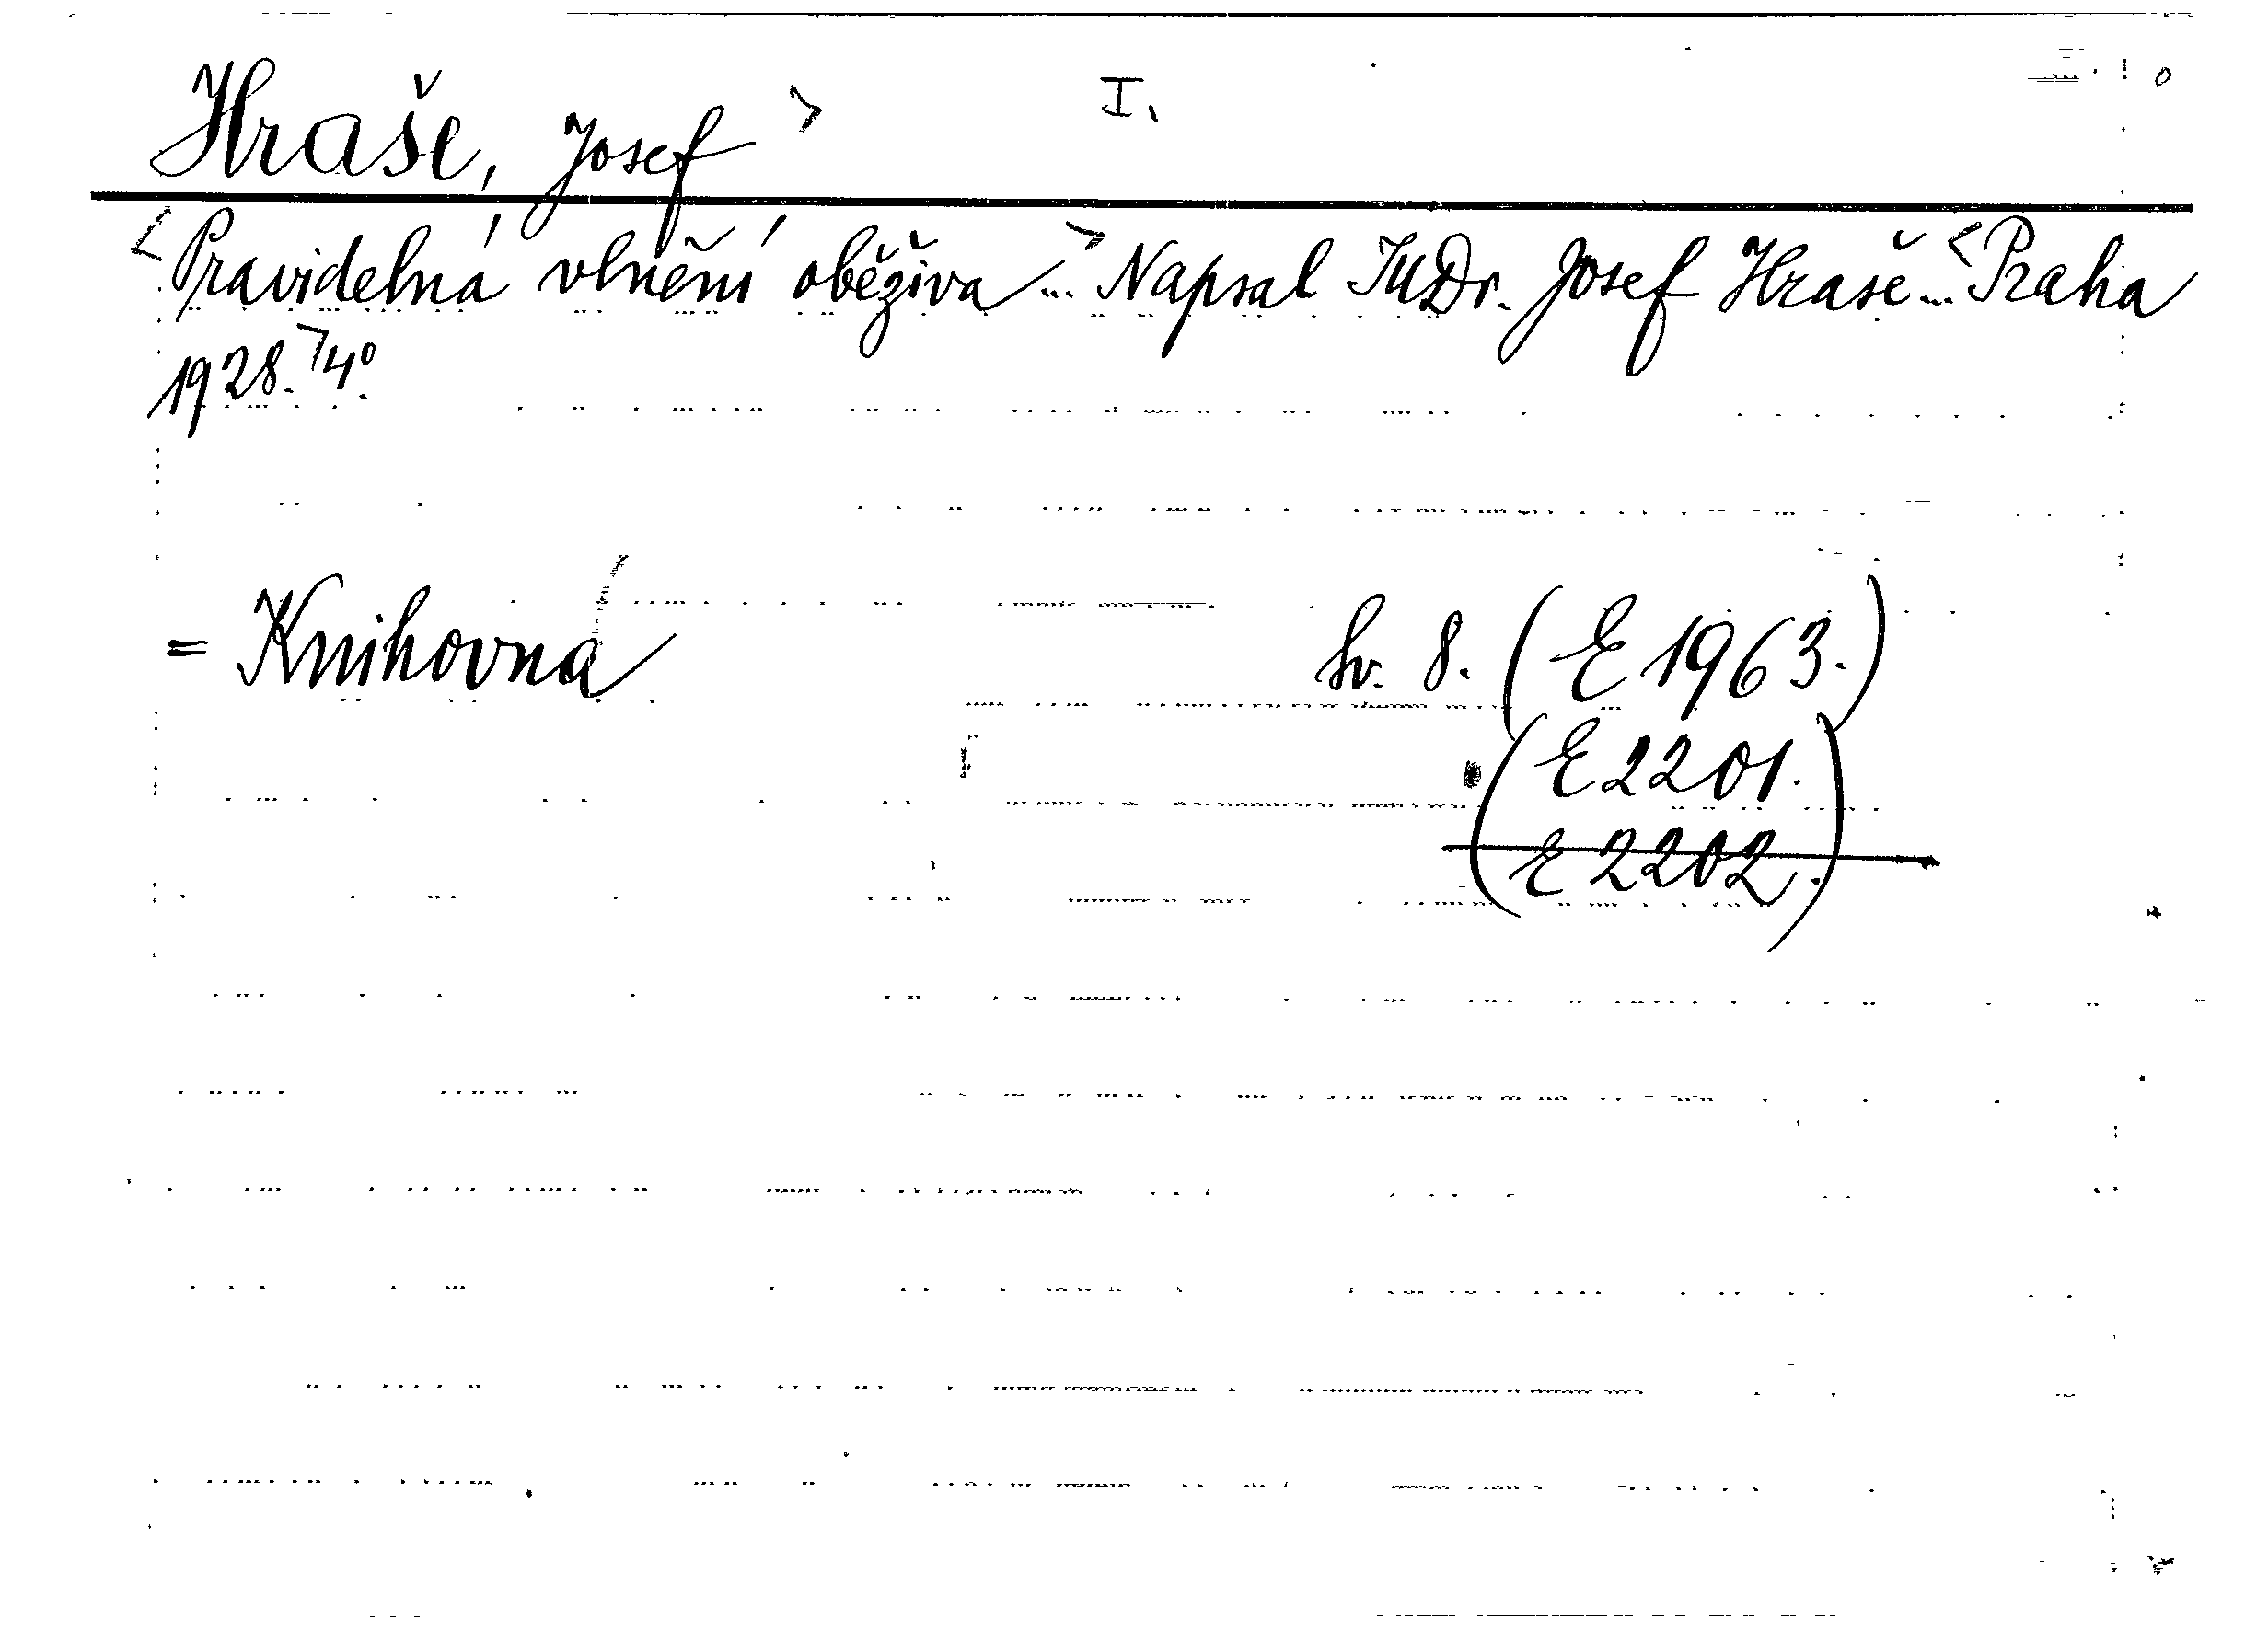 Hraše, Josef > I.
<Pravidelná vlnění oběživa...> Napsal JUDr. Josef Hraše...<Praha
1928.>4°.
= Knihovna sv. 8. (E 1963.)
(E 2201.
E 2202.)